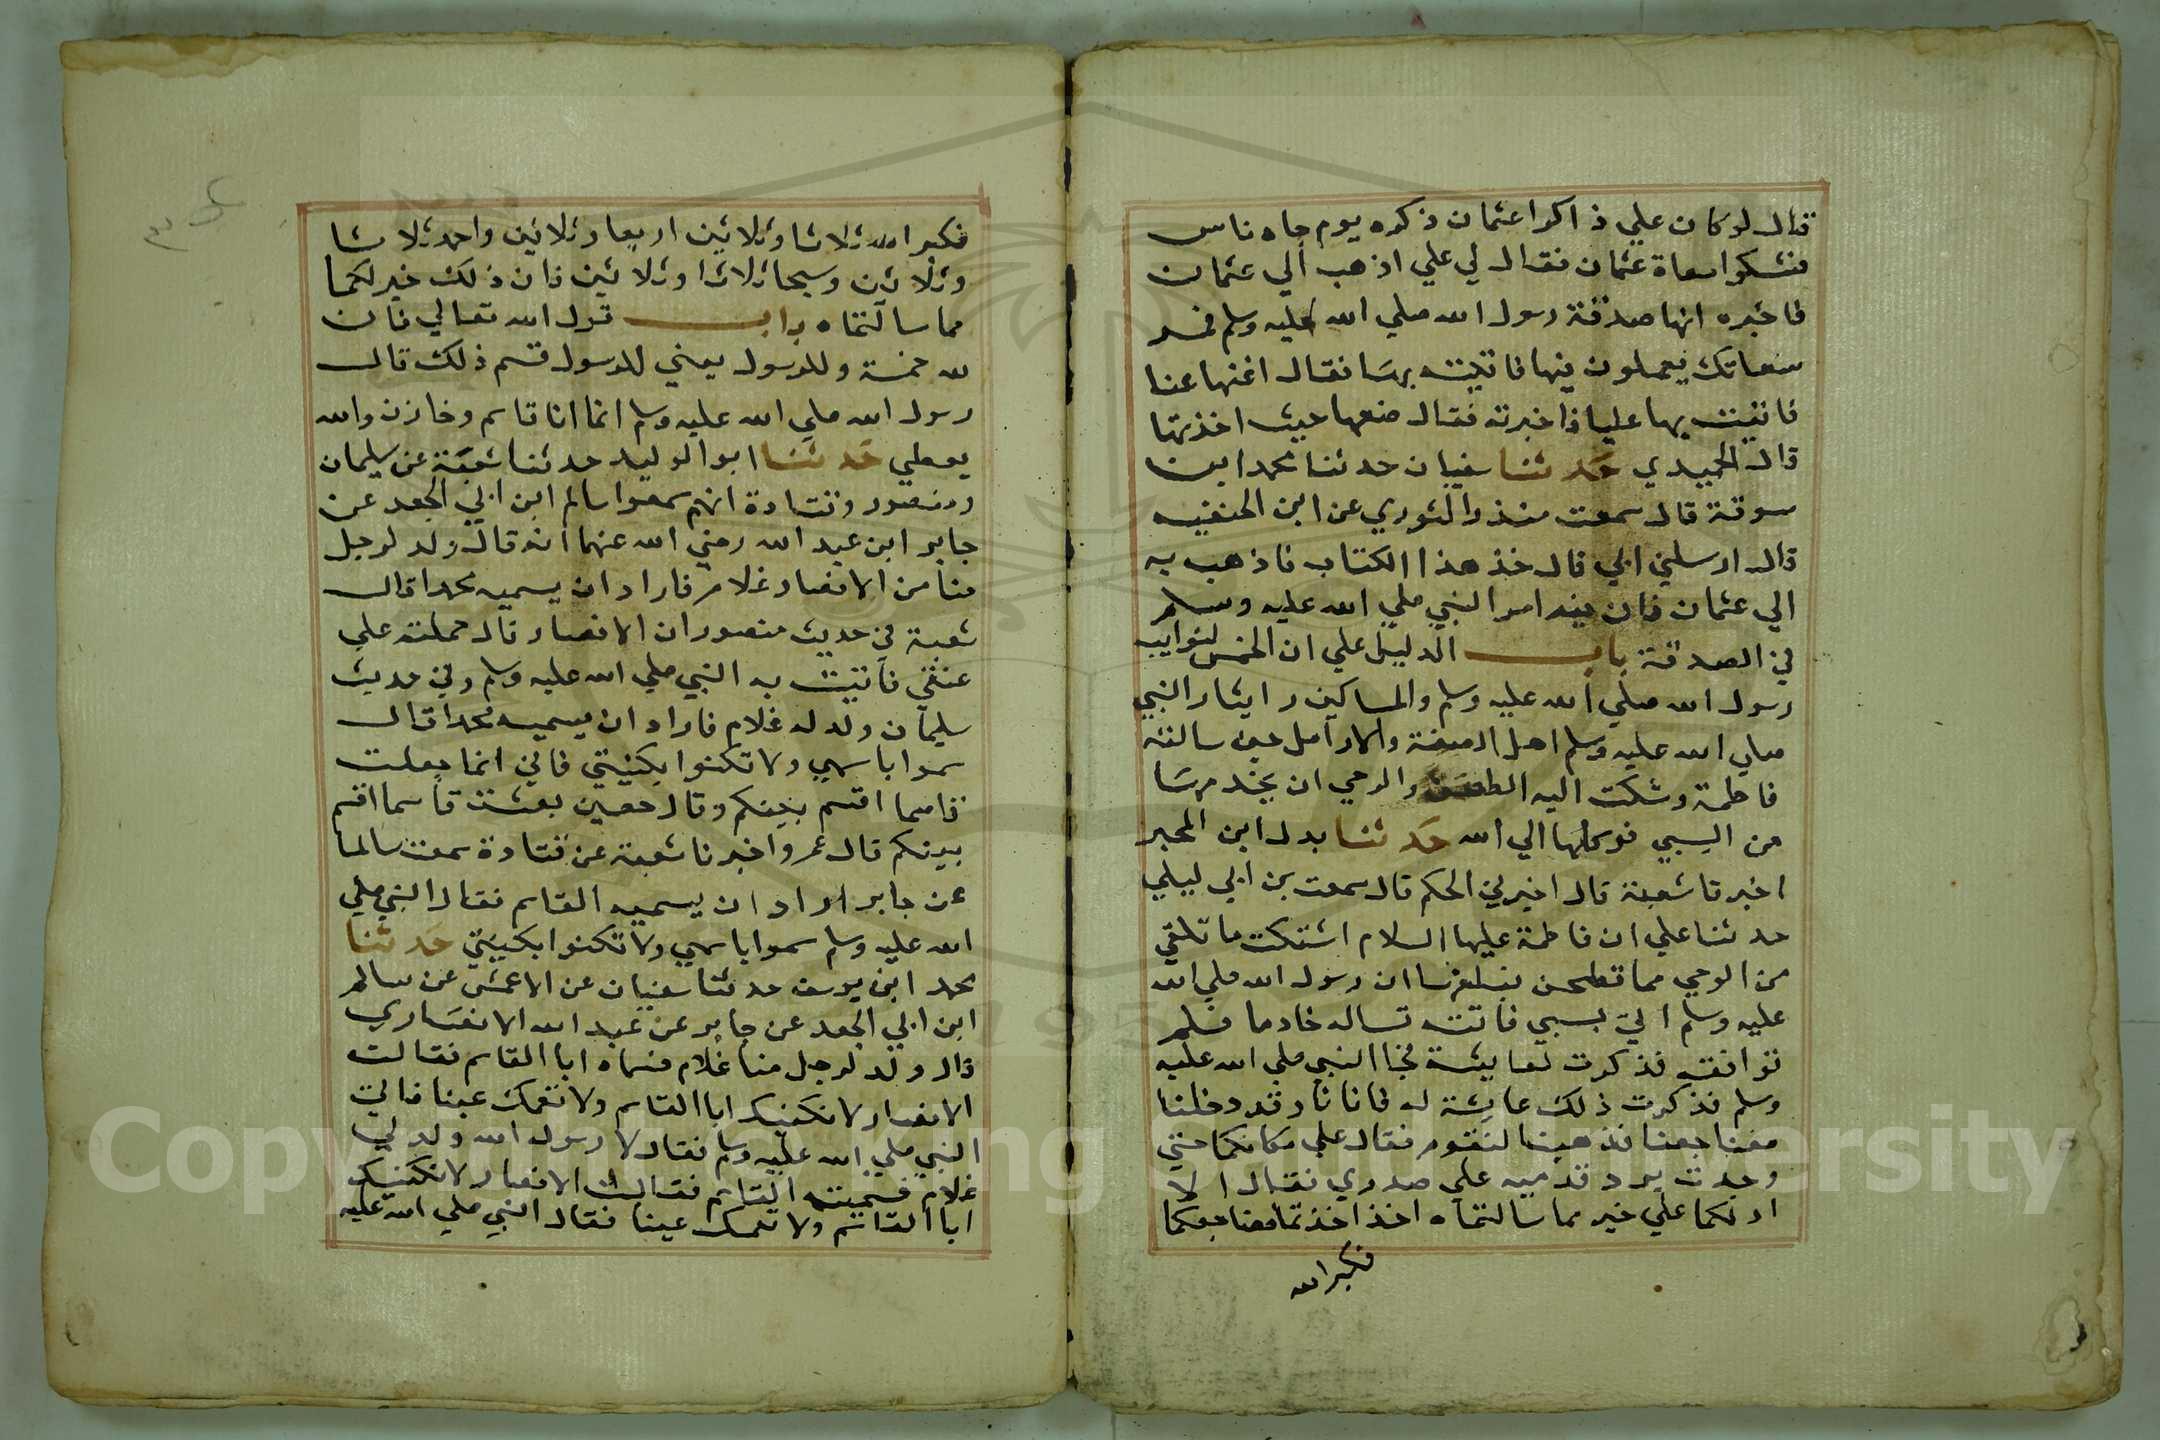 قال لو كان علي ذاكرا عثمان ذكره يوم جاه ناس
فشكوا سعاة عثمان فقال لي علي اذهب الي عثمان
فاخبره انها صدقة رسول الله صلي الله عليه وسلم فمر
سعاتك يعملون فيها فاتيته بها فقال اغنها عنا
فاتيت بها عليا فاخبرته فقال ضعها حيث اخذتها
قال الحميدي حدثنا سفيان حدثنا محمد ابن
سوقة قال سمعت منذر الثوري عن ابن الحنفيه
قال ارسلني ابي قال خذ هذا الكتاب فاذهب به
الي عثمان فان فيه امر النبي صلي الله عليه وسلم
في الصدقة باب الدليل علي ان الخمس لنوايب
رسول الله صلي الله عليه وسلم والمساكين وايثار النبي
صلي الله عليه وسلم اهل الصفة والارامل حين سالته
فاطمة وشكت اليه الطحن والرحي ان يخدمها
من السبي فوكلها الي الله حدثنا بدل ابن المحبر
اخبرنا شعبة قال اخبرني الحكم قال سمعت بن ابي ليلي
حدثنا علي ان فاطمة عليها السلام اشتكت ما تلقي
من الرحي مما تطحن فبلغها ان رسول الله صلي الله
عليه وسلم اتي بسبي فاتته تساله خادما فلم
توافقه فذكرت لعايشة فجا النبي صلي الله عليه
وسلم فذكرت ذلك عايشة له فاتانا وقد دخلنا
مضاجعنا فذهبنا لنقوم فقال علي مكانكما حتي
وجدت برد قدميه علي صدري فقال الا
ادلكما علي خير مما سالتماه اخذا اخذتما مضاجعكما
فكبرا الله
فكبرا الله ثلاثا وثلاثين اربعا وثلاثين واحمدا ثلاثا
وثلاثين وسبحا ثلاثا وثلاثين فان ذلك خير لكما
مما سالتماه باب قول الله تعالي فان
لله خمسة وللرسول يعني للرسول قسم ذلك قال
رسول الله صلي الله عليه وسلم انما انا قاسم وخازن والله
يعطي حدثنا ابو الوليد حدثنا شعبة عن سليمان
ومنصور وقتادة انهم سمعوا سالم ابن ابي الجعد عن
جابر ابن عبد الله رضي الله عنهما انه قال ولد لرجل
منا من الانصار غلام فاراد ان يسميه محمدا قال
شعبة في حديث منصور ان الانصار قال حملته علي
عنقي فاتيت به النبي صلي الله عليه وسلم وفي حديث
سليمان ولد له غلام فاراد ان يسميه محمدا قال
سموا باسمي ولا تكنوا بكنيتي فاني انما جعلت
قاسما اقسم بينكم وقال حصين بعثت قاسما اقسم
بينكم قال عمرو اخبرنا شعبة عن قتادة سمعت سالما
عن جابر اراد ان يسميه القاسم فقال النبي صلي
الله عليه وسلم سموا باسمي ولا تكنوا بكنيتي حدثنا
محمد ابن يوسف حدثنا سفيان عن الاعمش عن سالم
ابن ابي الجعد عن جابر عن عبد الله الانصاري
قال ولد لرجل منا غلام فسماه ابا القاسم فقالت
الانصار لا نكنيك ابا القاسم ولا نعمك عينا فاتي
النبي صلي الله عليه وسلم فقال لا رسول الله ولد لي
غلام فسميته القاسم فقالت الانصار لا نكنيك
ابا القاسم ولا نعمك عينا فقال النبي صلي الله عليه
Copyright © King Saud University